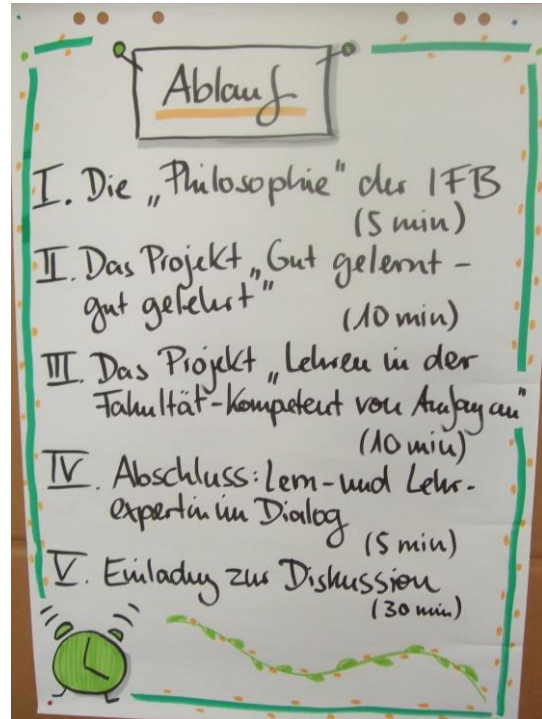 Ablauf
I. Die „Philosophie" der IFB
(5 min)
II. Das Projekt „Gut gelernt -
gut gelehrt"
(10 min)
III. Das Projekt „Lehren in der
Fakultät-Kompetent von Anfang an"
(10 min)
IV. Abschluss: Lern- und Lehr-
expertin im Dialog
(5 min)
V. Einladung zur Diskussion
(30 min)